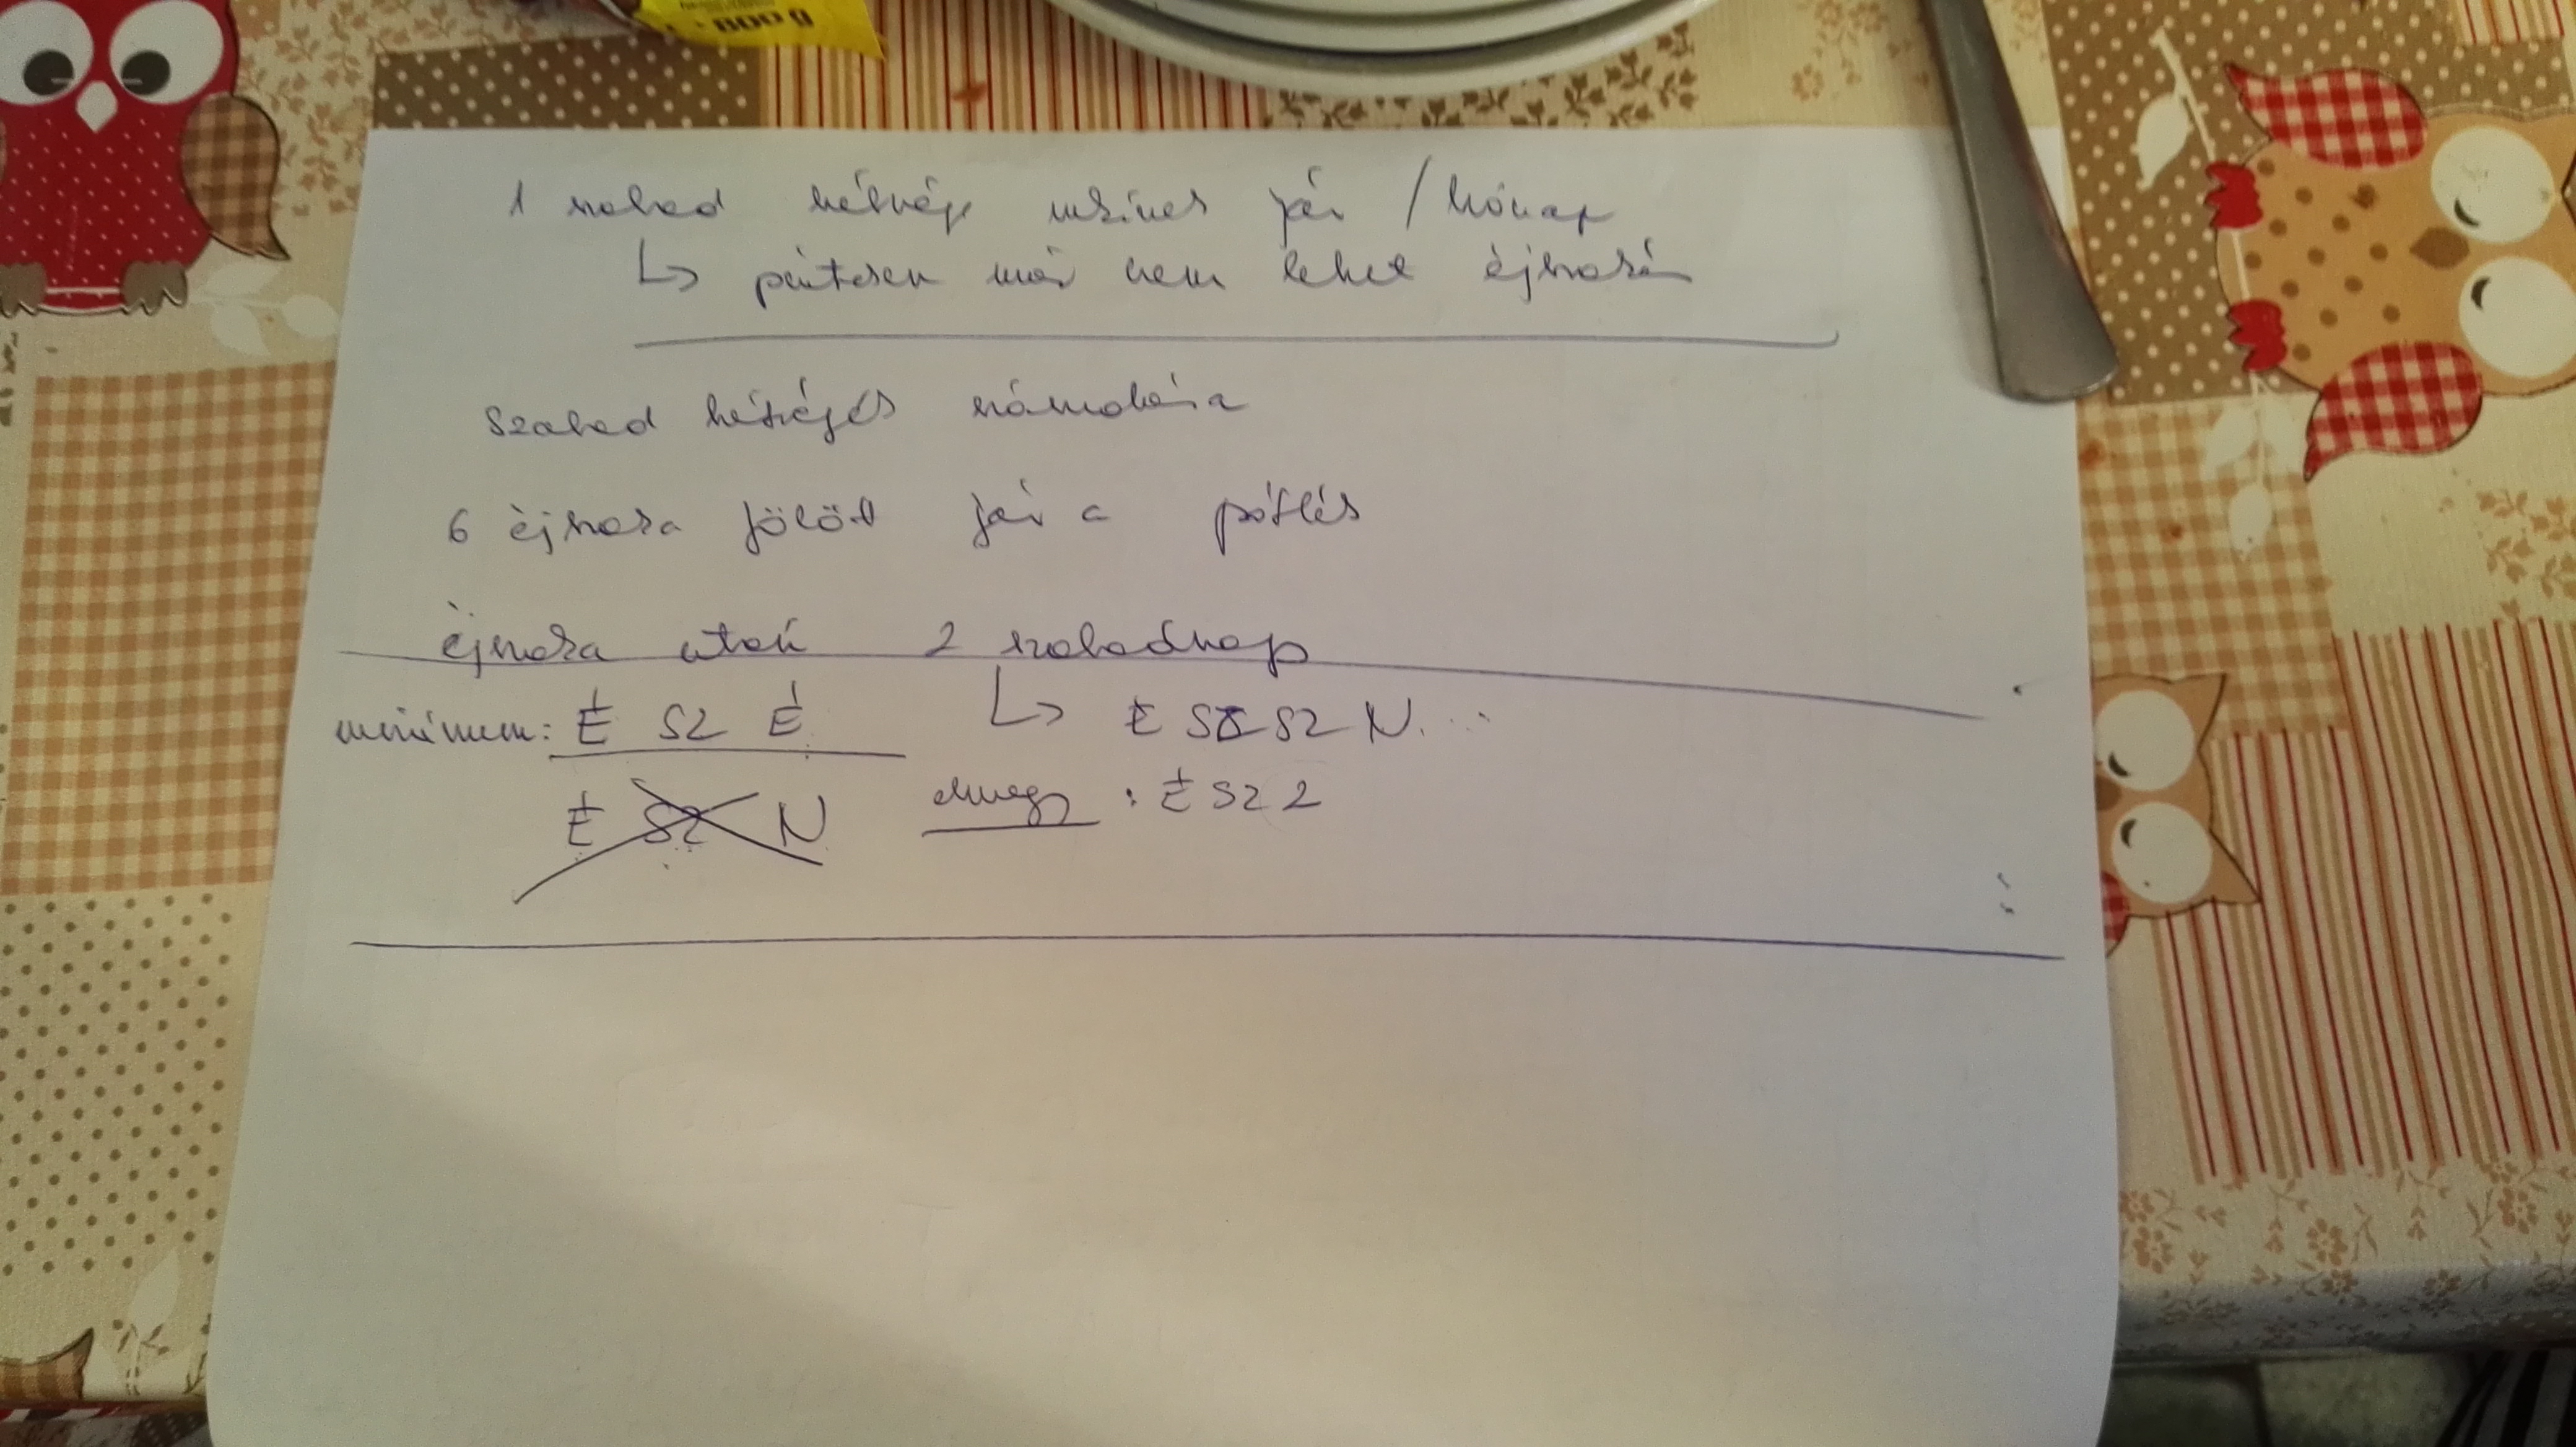 800 g
1 szabad hétvége mínes jár / hónap
↳ pénteken már nem lehet éjszakás
szabad hétvégés számolása
6 éjszaka fölött jár a pótlés
éjszaka után 2 szabadnap
minimum: É SZ É ↳ É SZ SZ N...
É SZ N elmegy : É SZ 2